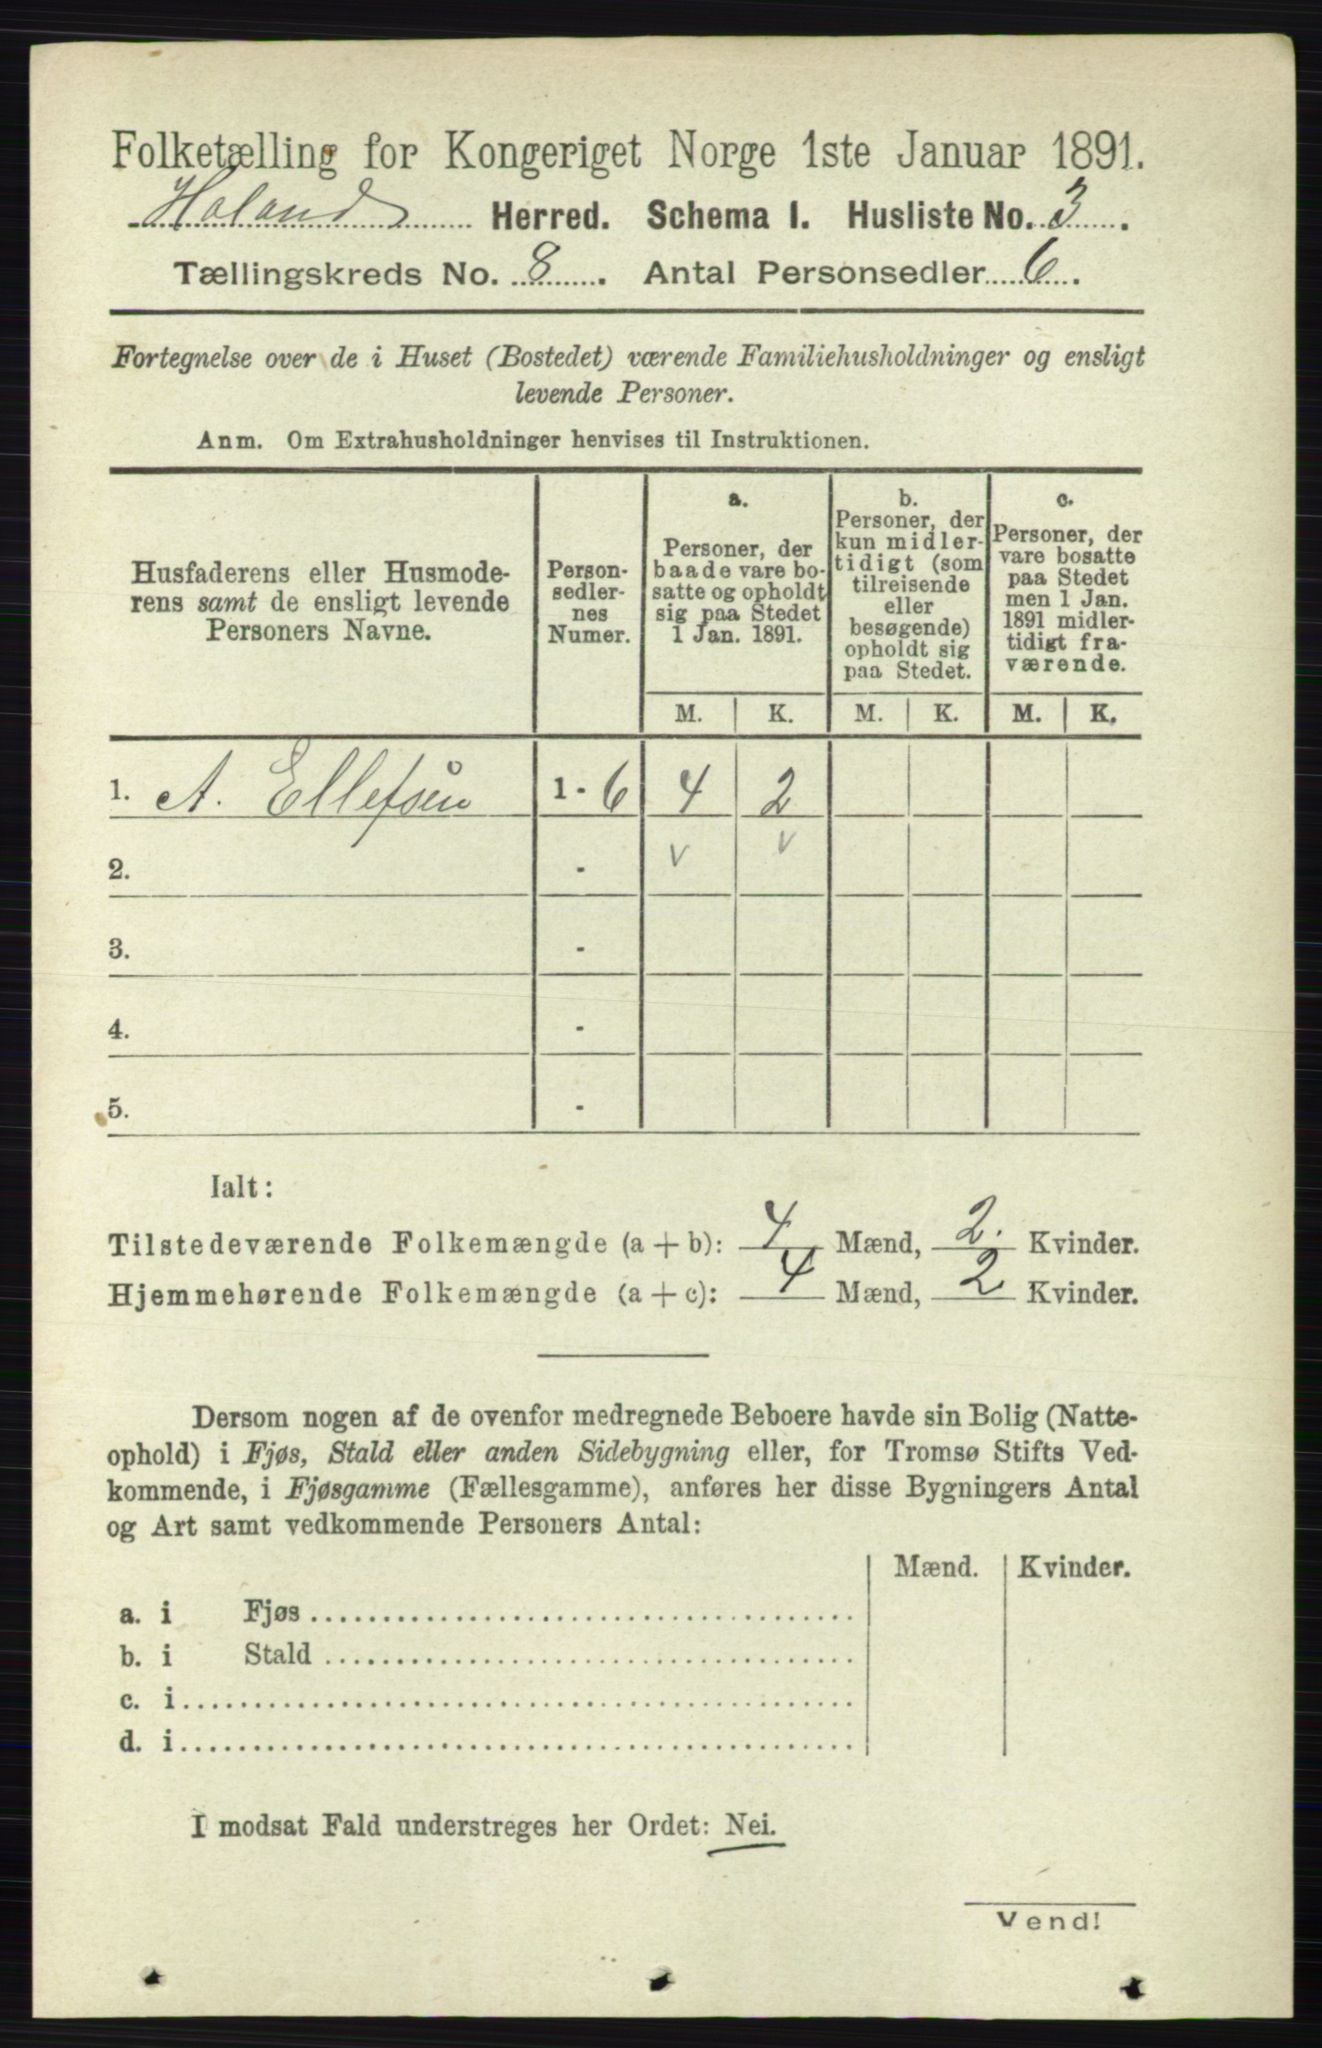 Folketælling for Kongeriget Norge 1ste Januar 1891.
Holand Herred. Schema I. Husliste No. 3.
Tællingskreds No. 8. Antal Personsedler 6.
Fortegnelse over de i Huset (Bostedet) værende Familiehusholdninger og ensligt
levende Personer.
Anm. Om Extrahusholdninger henvises til Instruktionen.
Husfaderens eller Husmode-
rens samt de ensligt levende
Personers Navne.
Person-
sedler-
nes
Numer.
a.
Personer, der
baade vare bo-
satte og opholdt
sig paa Stedet
1 Jan. 1891.
b.
Personer, der
kun midler-
tidigt (som
tilreisende
eller
besøgende)
opholdt sig
paa Stedet.
c.
Personer, der
vare bosatte
paa Stedet
men 1 Jan.
1891 midler-
tidigt fra-
værende.
M. K. M. K. M. K.
1. A. Ellefsen 1 - 6 4 2
2. - v v
3. -
4. -
5. -
Ialt:
Tilstedeværende Folkemængde (a + b): 4 Mænd, 2. Kvinder.
Hjemmehørende Folkemængde (a + c): 4 Mænd, 2 Kvinder.
Dersom nogen af de ovenfor medregnede Beboere havde sin Bolig (Natte-
ophold) i Fjøs, Stald eller anden Sidebygning eller, for Tromsø Stifts Ved-
kommende, i Fjøsgamme (Fællesgamme), anføres her disse Bygningers Antal
og Art samt vedkommende Personers Antal:
Mænd. Kvinder.
a. i Fjøs
b. i Stald
c. i
d. i
I modsat Fald understreges her Ordet: Nei.
Vend!